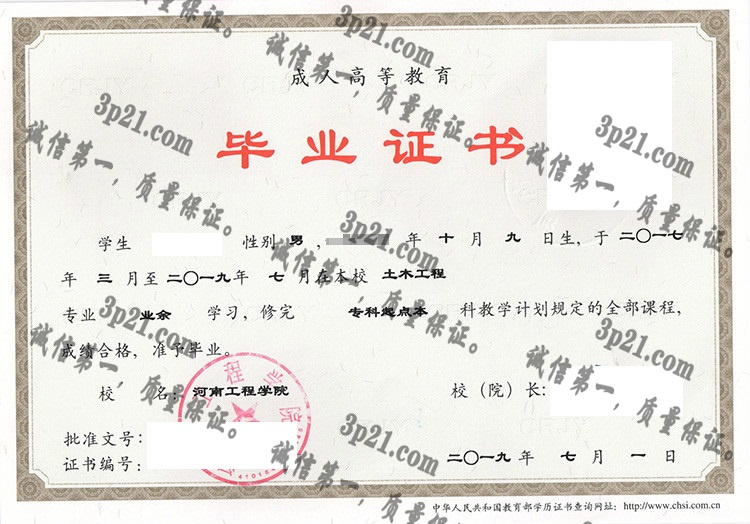 成人高等教育
毕业证书
学生 性别 男 , 年 十 月 九 日生, 于 二〇一七
年 三 月至 二〇一九年 七 月在本校 土木工程
专业 业余 学习, 修完 专科起点本 科教学计划规定的全部课程,
成绩合格, 准予毕业。
校 名: 河南工程学院 校（院）长:
批准文号:
证书编号: 二〇一九年 七 月 一 日
中华人民共和国教育部学历证书查询网址: http://www.chsi.com.cn
工程学院
3p21.com
诚信第一，质量保证。
3p21.com
诚信第一，质量保证。
3p21.com
诚信第一，质量保证。
3p21.com
诚信第一，质量保证。
3p21.com
诚信第一，质量保证。
3p21.com
诚信第一，质量保证。
3p21.com
诚信第一，质量保证。
3p21.com
诚信第一，质量保证。